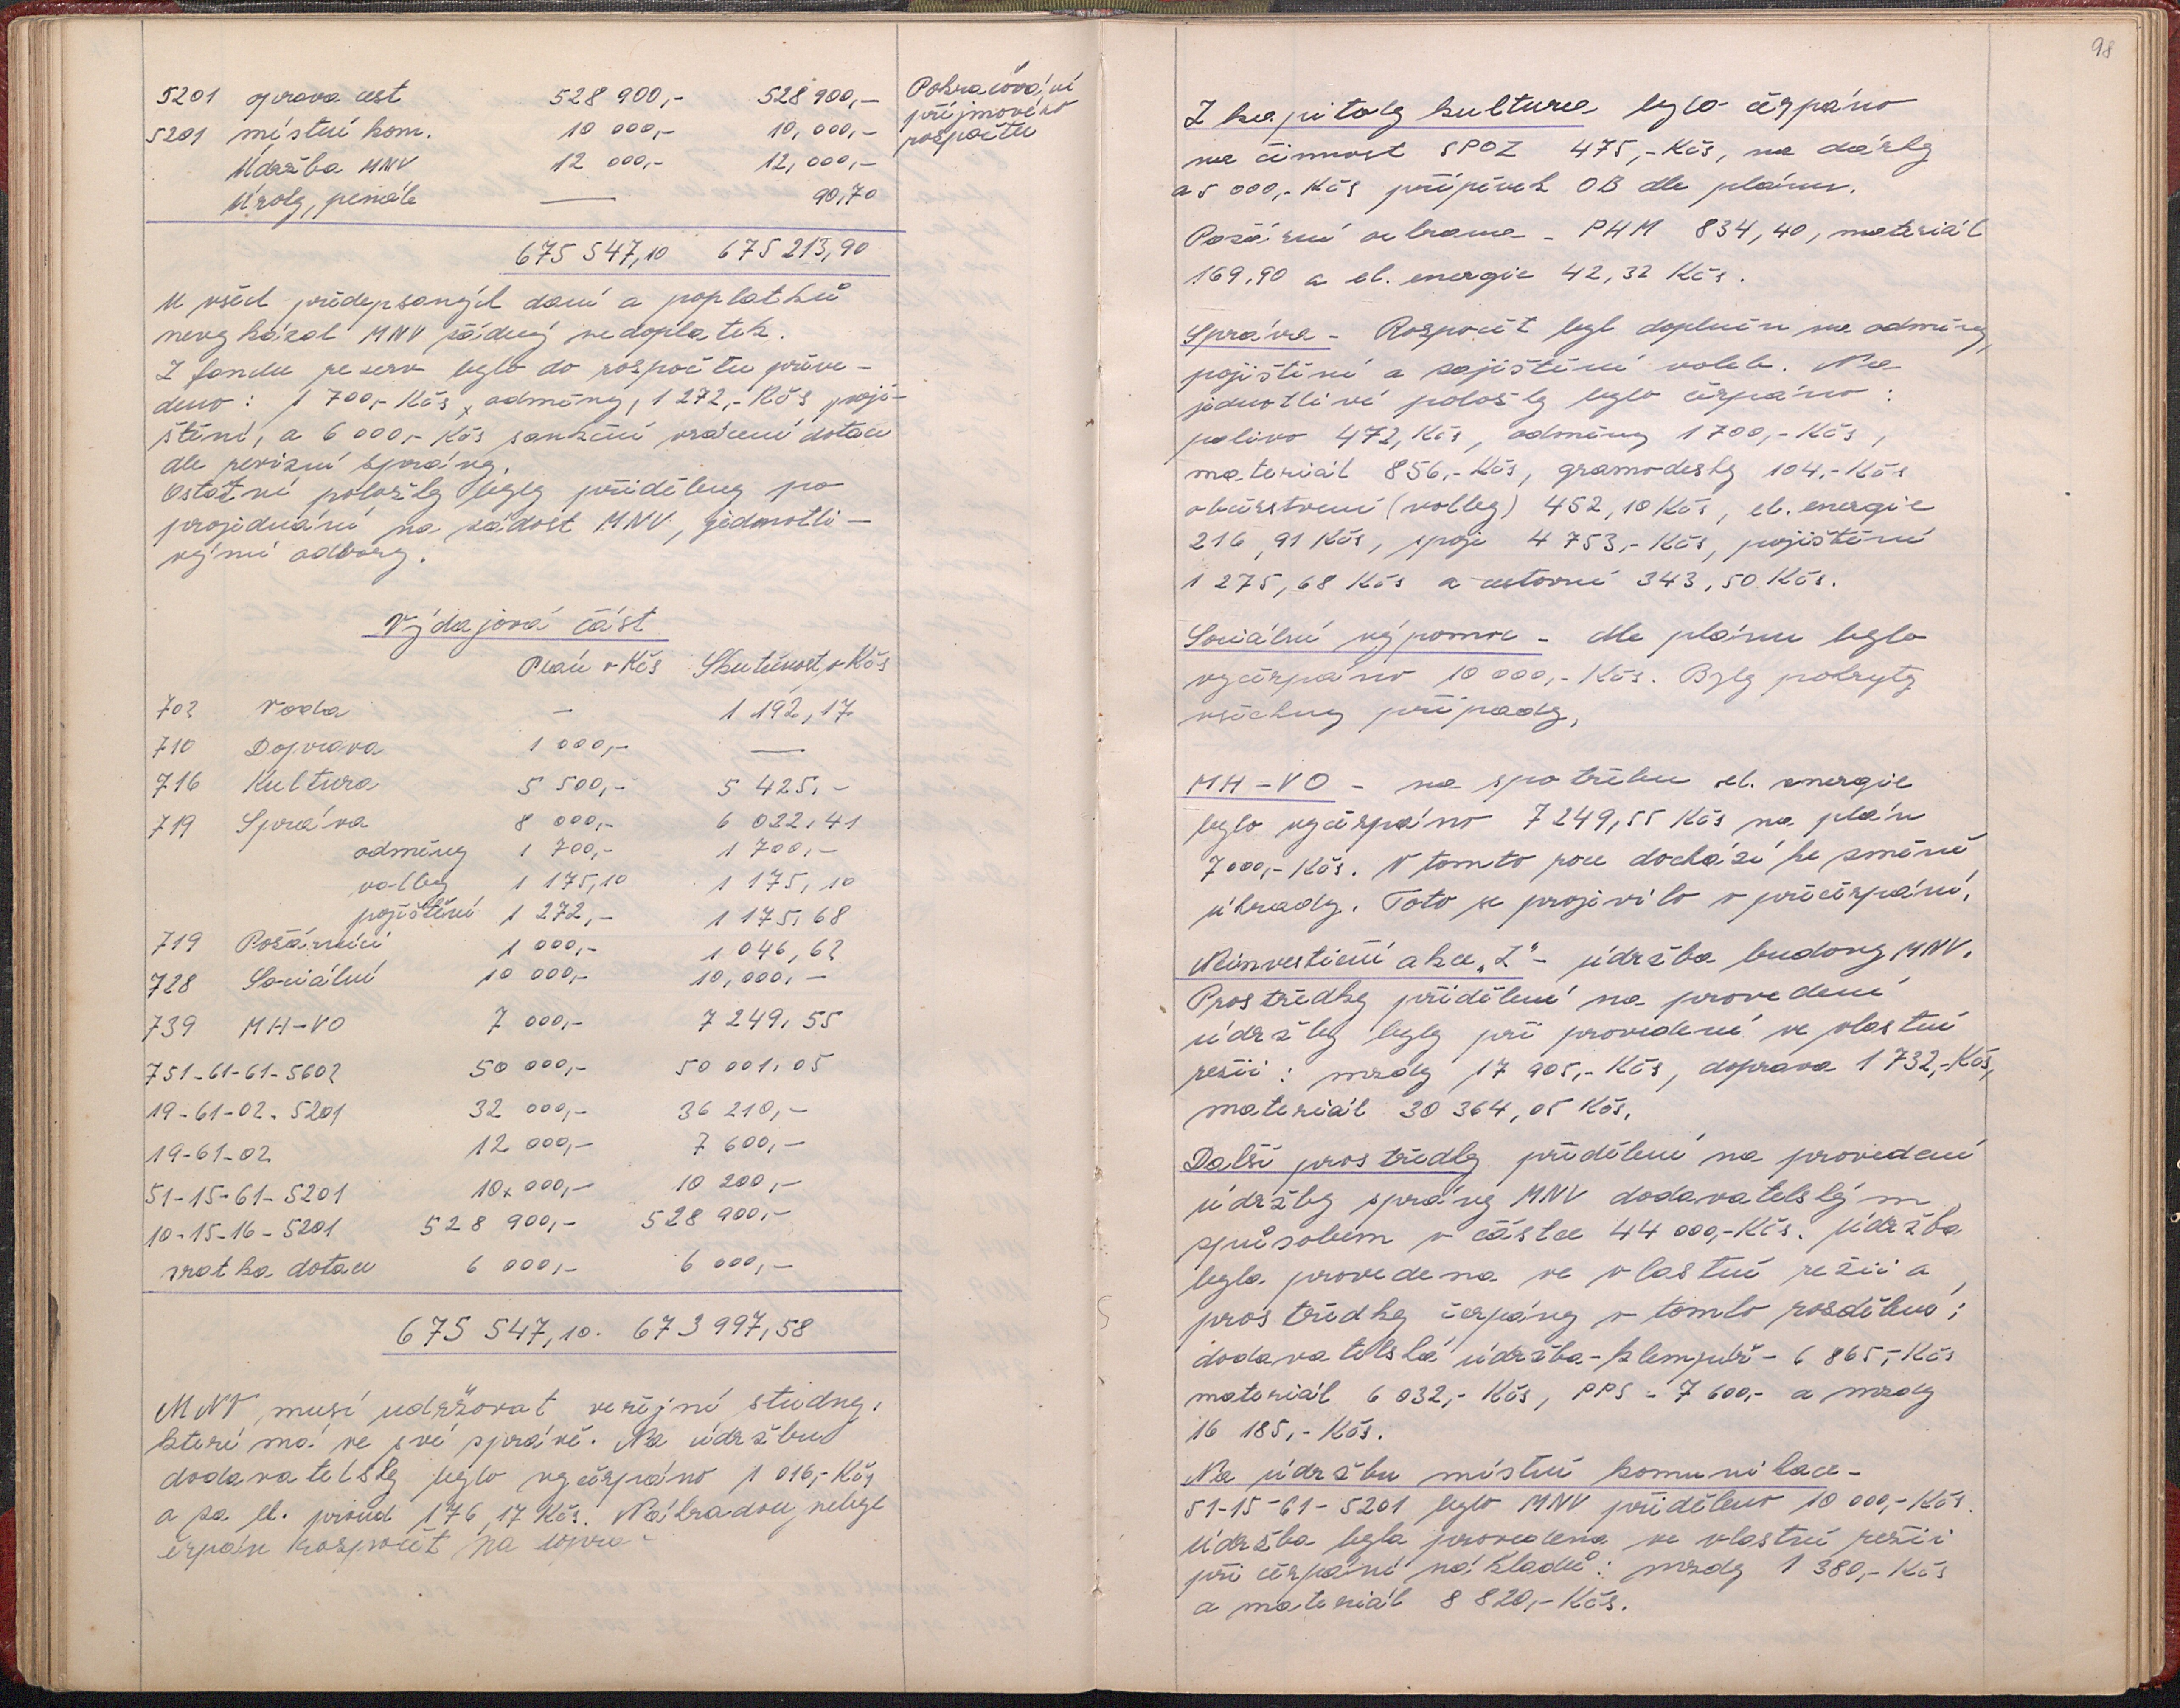 5201 oprava cest 528 900,- 528 900,-
5201 místní kom. 10 000,- 10,000,-
Údržba MNV 12 000,- 12,000,-
Úroky, penále — 90,70
675 547,10 675 213,90
Pokračování
příjmového
rozpočtu
U všech předepsaných daní a poplatků
nevykázal MNV žádný nedoplatek.
Z fondu rezerv bylo do rozpočtu převe-
deno: 1 700,- Kčs odměny, 1 272,- Kčs poji-
štění, a 6 000,- Kčs sankční vrácení dotace
dle revizní zprávy.
Ostatní položky byly přiděleny po
projednání na žádost MNV, jednotli-
vými odbory.
Výdajová část
Plán v Kčs Skutečnost v Kčs
702 Voda — 1 192,17
710 Doprava 1 000,- —
716 Kultura 5 500,- 5 425,-
719 Správa 8 000,- 6 022,41
odměny 1 700,- 1 700,-
volby 1 175,10 1 175,10
pojištění 1 272,- 1 175,68
719 Požárníci 1 000,- 1 046,62
728 Sociální 10 000,- 10,000,-
739 MH-VO 7 000,- 7 249,55
751-61-61-5602 50 000,- 50 001,05
19-61-02-5201 32 000,- 36 210,-
19-61-02 12 000,- 7 600,-
51-15-61-5201 10 000,- 10 200,-
10-15-16-5201 528 900,- 528 900,-
vratka dotace 6 000,- 6 000,-
675 547,10. 673 997,58
MNV musí udržovat veřejné studny,
které má ve své správě. Na údržbu
dodavatelsky bylo vyčerpáno 1 016,- Kčs
a za el. proud 176,17 Kčs. Náhradou nebyl
čerpán rozpočet na dopra-
98
Z kapitoly kultura bylo čerpáno
na činnost SPOZ 475,- Kčs, na dárky
a 5 000,- Kčs příspěvek OB dle plánu.
Požární ochrana - PHM 834,40, materiál
169,90 a el. energie 42,32 Kčs.
Správa - Rozpočet byl doplněn na odměny,
pojištění a zajištění voleb. Na
jednotlivé položky bylo čerpáno:
palivo 472, Kčs, odměny 1 700,- Kčs,
materiál 856,- Kčs, gramodesky 104,- Kčs
občerstvení (volby) 452,10 Kčs, el. energie
216,91 Kčs, spoje 4 753,- Kčs, pojištění
1 275,68 Kčs a cestovné 343,50 Kčs.
Sociální výpomoc - dle plánu bylo
vyčerpáno 10 000,- Kčs. Byly pokryty
všechny případy.
MH-VO - na spotřebu el. energie
bylo vyčerpáno 7 249,55 Kčs na plán
7 000,- Kčs. V tomto roce dochází ke změně
úhrady. Toto se projevilo v přečerpání.
Neinvestiční akce "Z" - údržba budovy MNV.
Prostředky přidělené na provedení
údržby byly při provedení ve vlastní
režii: mzdy 17 905,- Kčs, doprava 1 732,- Kčs,
materiál 30 364,05 Kčs.
Další prostředky přidělené na provedení
údržby správy MNV dodavatelským
způsobem v částce 44 000,- Kčs. Údržba
byla provedena ve vlastní režii a
prostředky čerpány v tomto rozdělení:
dodavatelská údržba - klempíř - 6 865,- Kčs
materiál 6 032,- Kčs, PPS - 7 600,- a mzdy
16 185,- Kčs.
Na údržbu místní komunikace -
51-15-61-5201 bylo MNV přiděleno 10 000,- Kčs.
Údržba byla provedena ve vlastní režii
při čerpání nákladů: mzdy 1 380,- Kčs
a materiál 8 820,- Kčs.